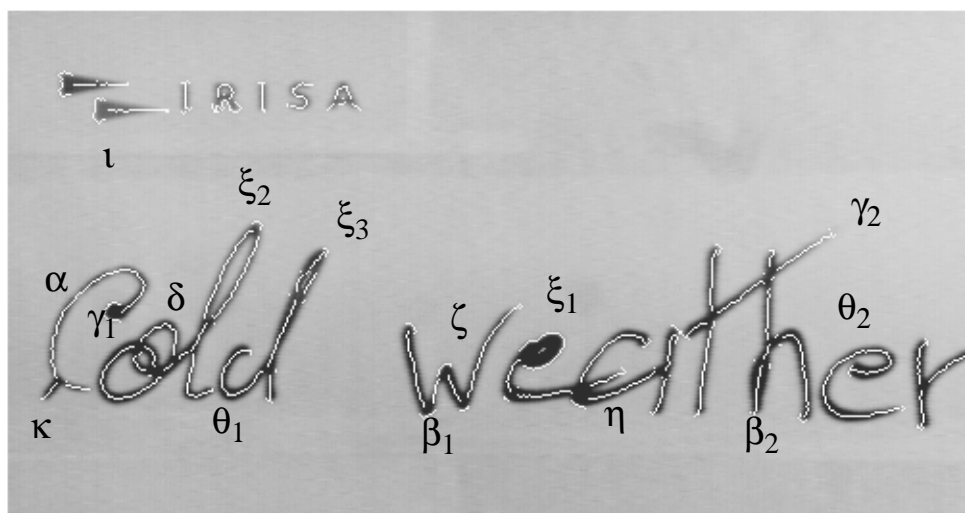 IRISA
ι
ξ₂ ξ₃ γ₂
α γ₁ δ ζ ξ₁ θ₂
Cold weather
κ θ₁ β₁ η β₂